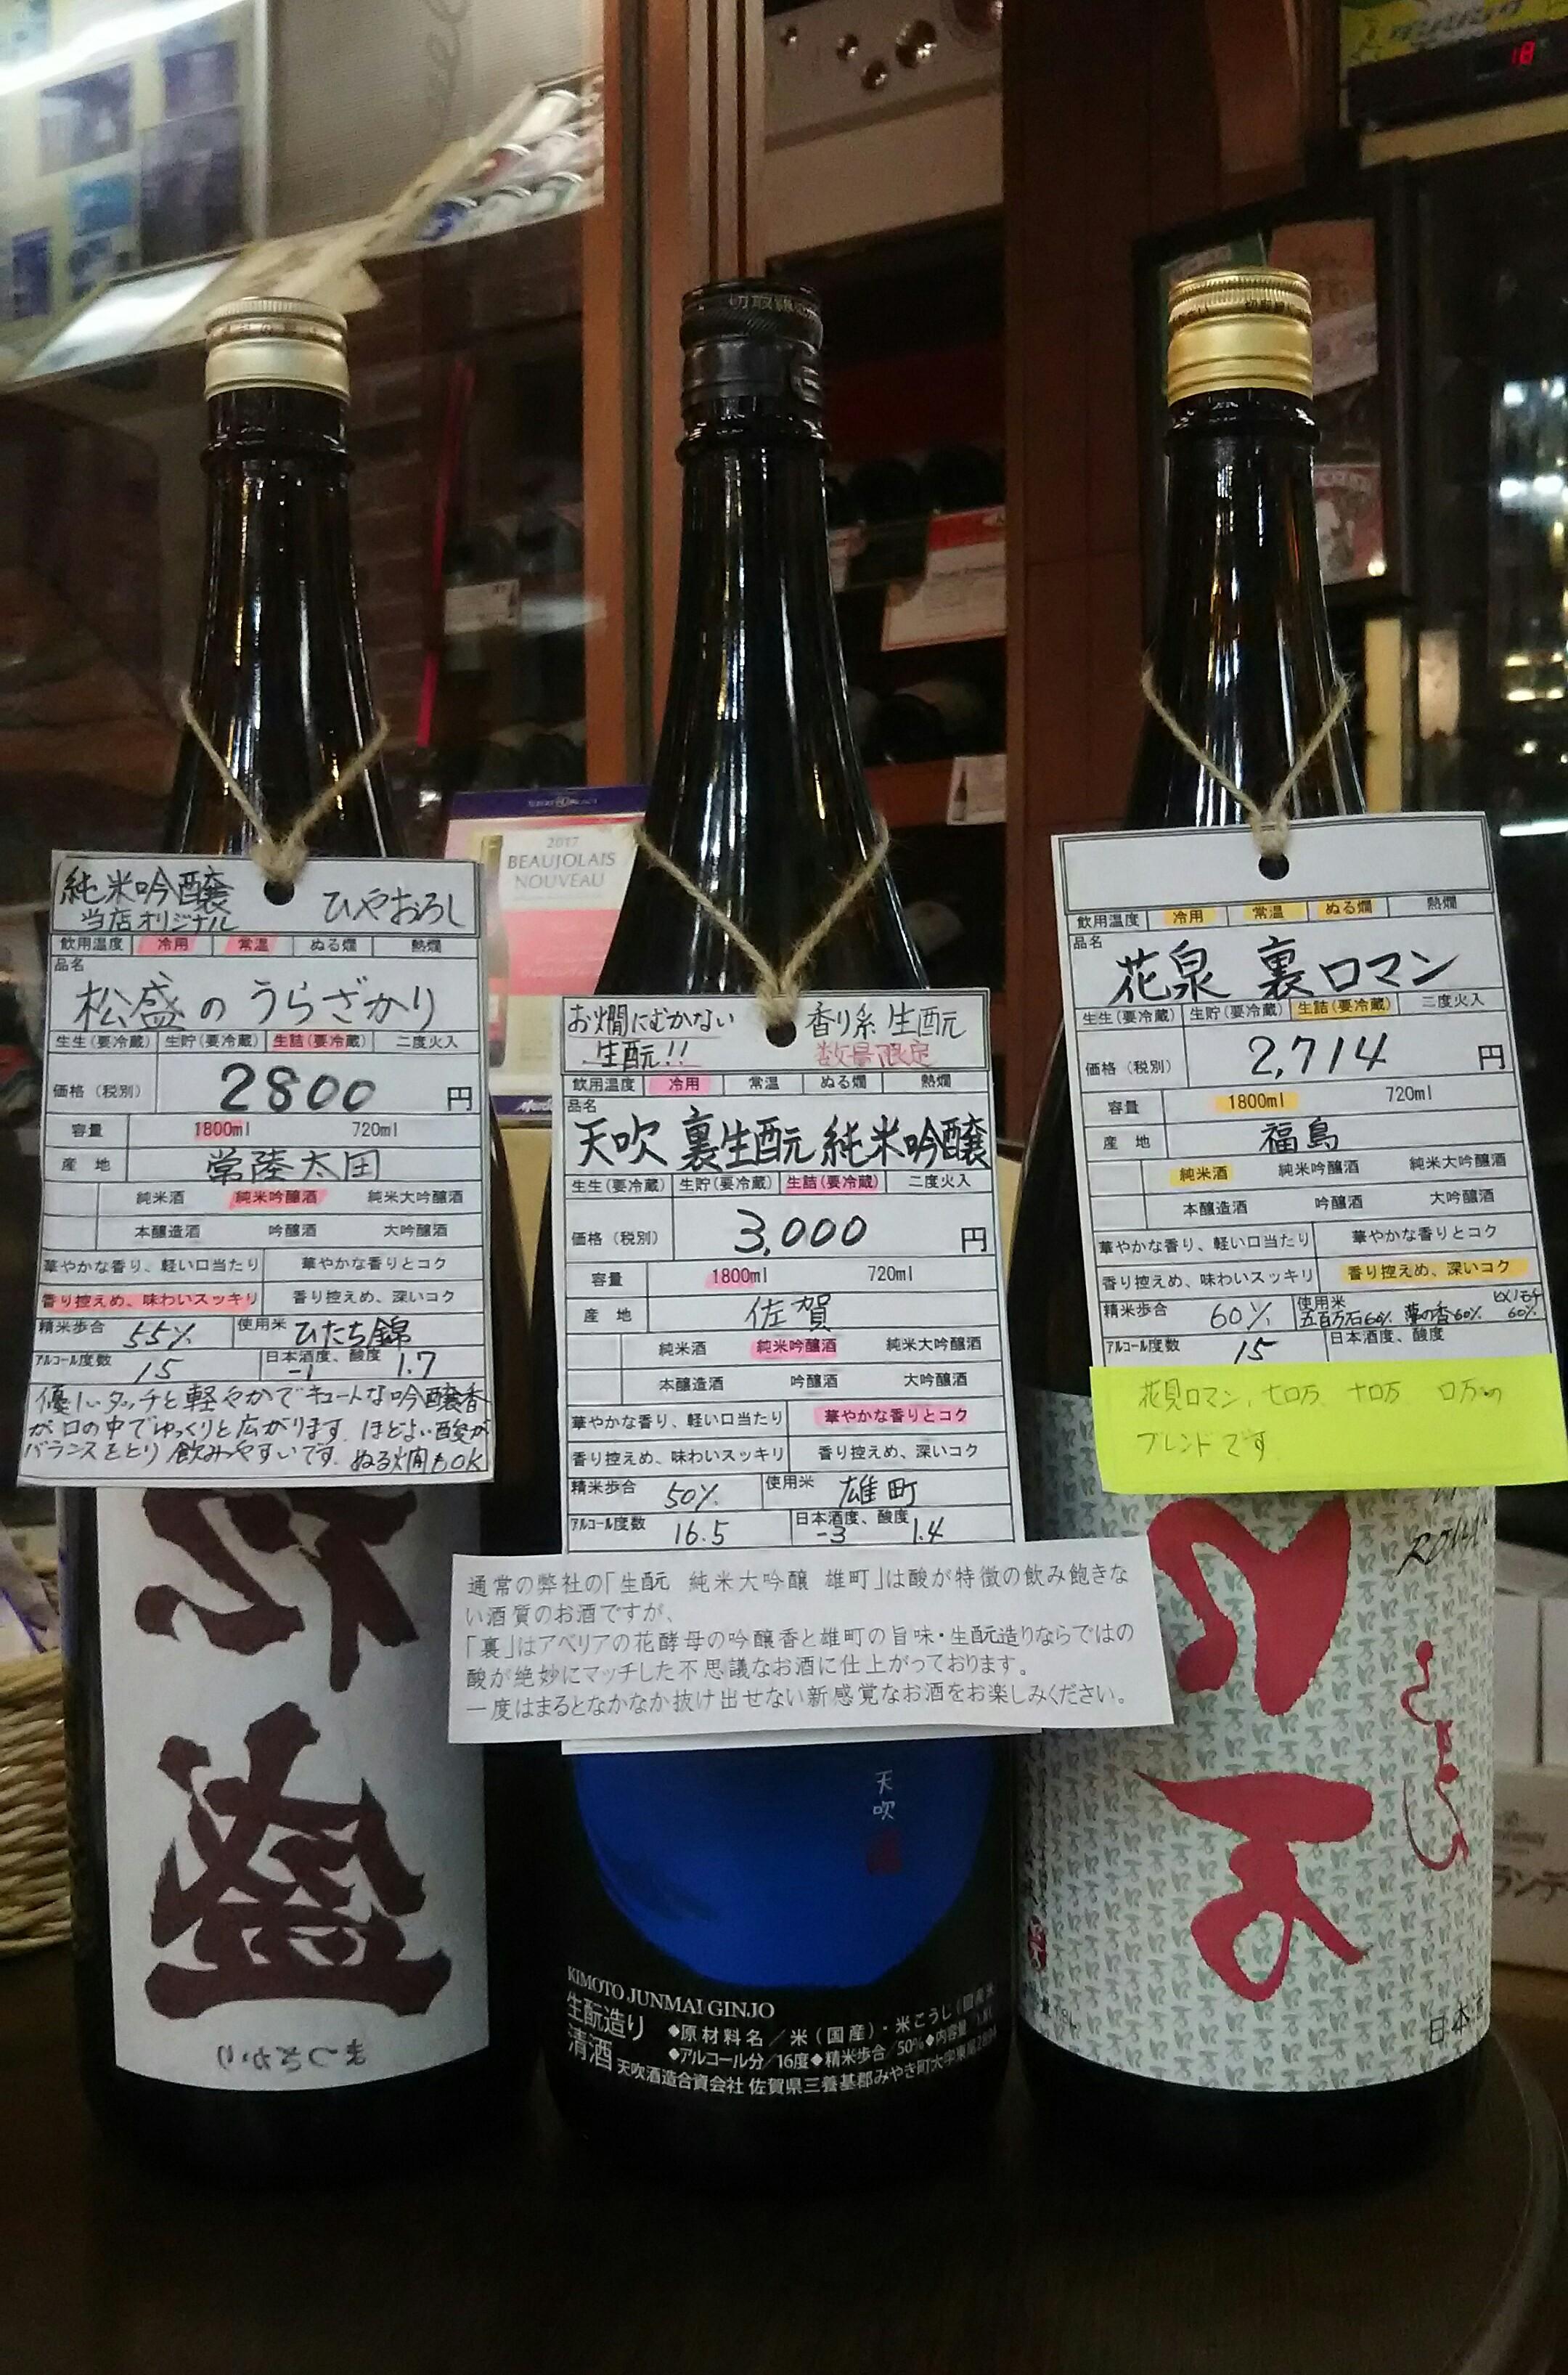 18
2017
BEAUJOLAIS
NOUVEAU
純米吟醸 ひやおろし
当店オリジナル
飲用温度 冷用 常温 ぬる燗 熱燗
品名
松盛のうらざかり
生生(要冷蔵) 生貯(要冷蔵) 生詰(要冷蔵) 二度火入
価格(税別) 2800 円
容量 1800ml 720ml
産地 常陸太田
純米酒 純米吟醸酒 純米大吟醸酒
本醸造酒 吟醸酒 大吟醸酒
華やかな香り、軽い口当たり 華やかな香りとコク
香り控えめ、味わいスッキリ 香り控えめ、深いコク
精米歩合 55% 使用米 ひたち錦
アルコール度数 15 日本酒度、酸度 -1 1.7
優しいタッチと軽やかでキュートな吟醸香
が口の中でゆっくりと広がります。ほどよい酸が
バランスをとり飲みやすいです。ぬる燗もOK
盛
お燗にむかない 香り系 生酛
生酛!! 数量限定
飲用温度 冷用 常温 ぬる燗 熱燗
品名
天吹 裏生酛 純米吟醸
生生(要冷蔵) 生貯(要冷蔵) 生詰(要冷蔵) 二度火入
価格(税別) 3,000 円
容量 1800ml 720ml
産地 佐賀
純米酒 純米吟醸酒 純米大吟醸酒
本醸造酒 吟醸酒 大吟醸酒
華やかな香り、軽い口当たり 華やかな香りとコク
香り控えめ、味わいスッキリ 香り控えめ、深いコク
精米歩合 50% 使用米 雄町
アルコール度数 16.5 日本酒度、酸度 -3 1.4
通常の弊社の「生酛 純米大吟醸 雄町」は酸が特徴の飲み飽きな
い酒質のお酒ですが、
「裏」はアベリアの花酵母の吟醸香と雄町の旨味・生酛造りならではの
酸が絶妙にマッチした不思議なお酒に仕上がっております。
一度はまるとなかなか抜け出せない新感覚なお酒をお楽しみください。
天吹
KIMOTO JUNMAI GINJO
生酛造り
清酒
◆原材料名/米(国産)・米こうじ
◆アルコール分/16度◆精米歩合/50%◆内容量
天吹酒造合資会社 佐賀県三養基郡みやき町大字東尾2894
飲用温度 冷用 常温 ぬる燗 熱燗
品名
花泉 裏ロマン
生生(要冷蔵) 生貯(要冷蔵) 生詰(要冷蔵) 二度火入
価格(税別) 2,714 円
容量 1800ml 720ml
産地 福島
純米酒 純米吟醸酒 純米大吟醸酒
本醸造酒 吟醸酒 大吟醸酒
華やかな香り、軽い口当たり 華やかな香りとコク
香り控えめ、味わいスッキリ 香り控えめ、深いコク
精米歩合 60% 使用米 五百万石60% 夢の香60% ヒメノモチ60%
アルコール度数 15 日本酒度、酸度
花見ロマン、七ロ万 十ロ万 ロ万の
ブレンドです
日本酒